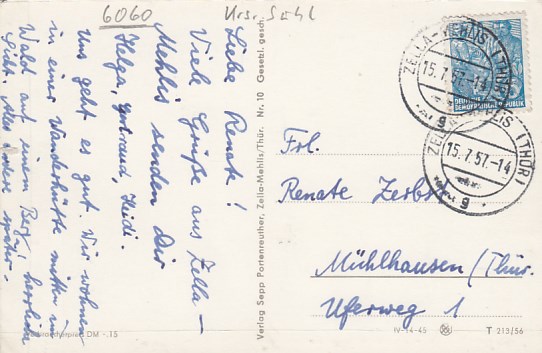 6060
Krs. Suhl
Liebe Renate!
Viele Grüße aus Zella-
Mehlis senden Dir
Helga, Gertraud, Heidi.
Uns geht es gut. Wir wohnen
in einer Wanderhütte mitten im
Wald auf einem Berg; herrlich
Alles weitere später.
DM -.15
Verlag Sepp Portenreuther, Zella-Mehlis/Thür. Nr. 10 Gesetzl. gesch.
ZELLA-MEHLIS (THÜR)
15.7.57.-14
g
DEUTSCHE
DEMOKRATISCHE REPUBLIK
ZELLA-MEHLIS (THÜR)
15.7.57.-14
g
Frl.
Renate Zerbst
Mühlhausen/Thür.
Uferweg 1
IV-14-45
T 213/56